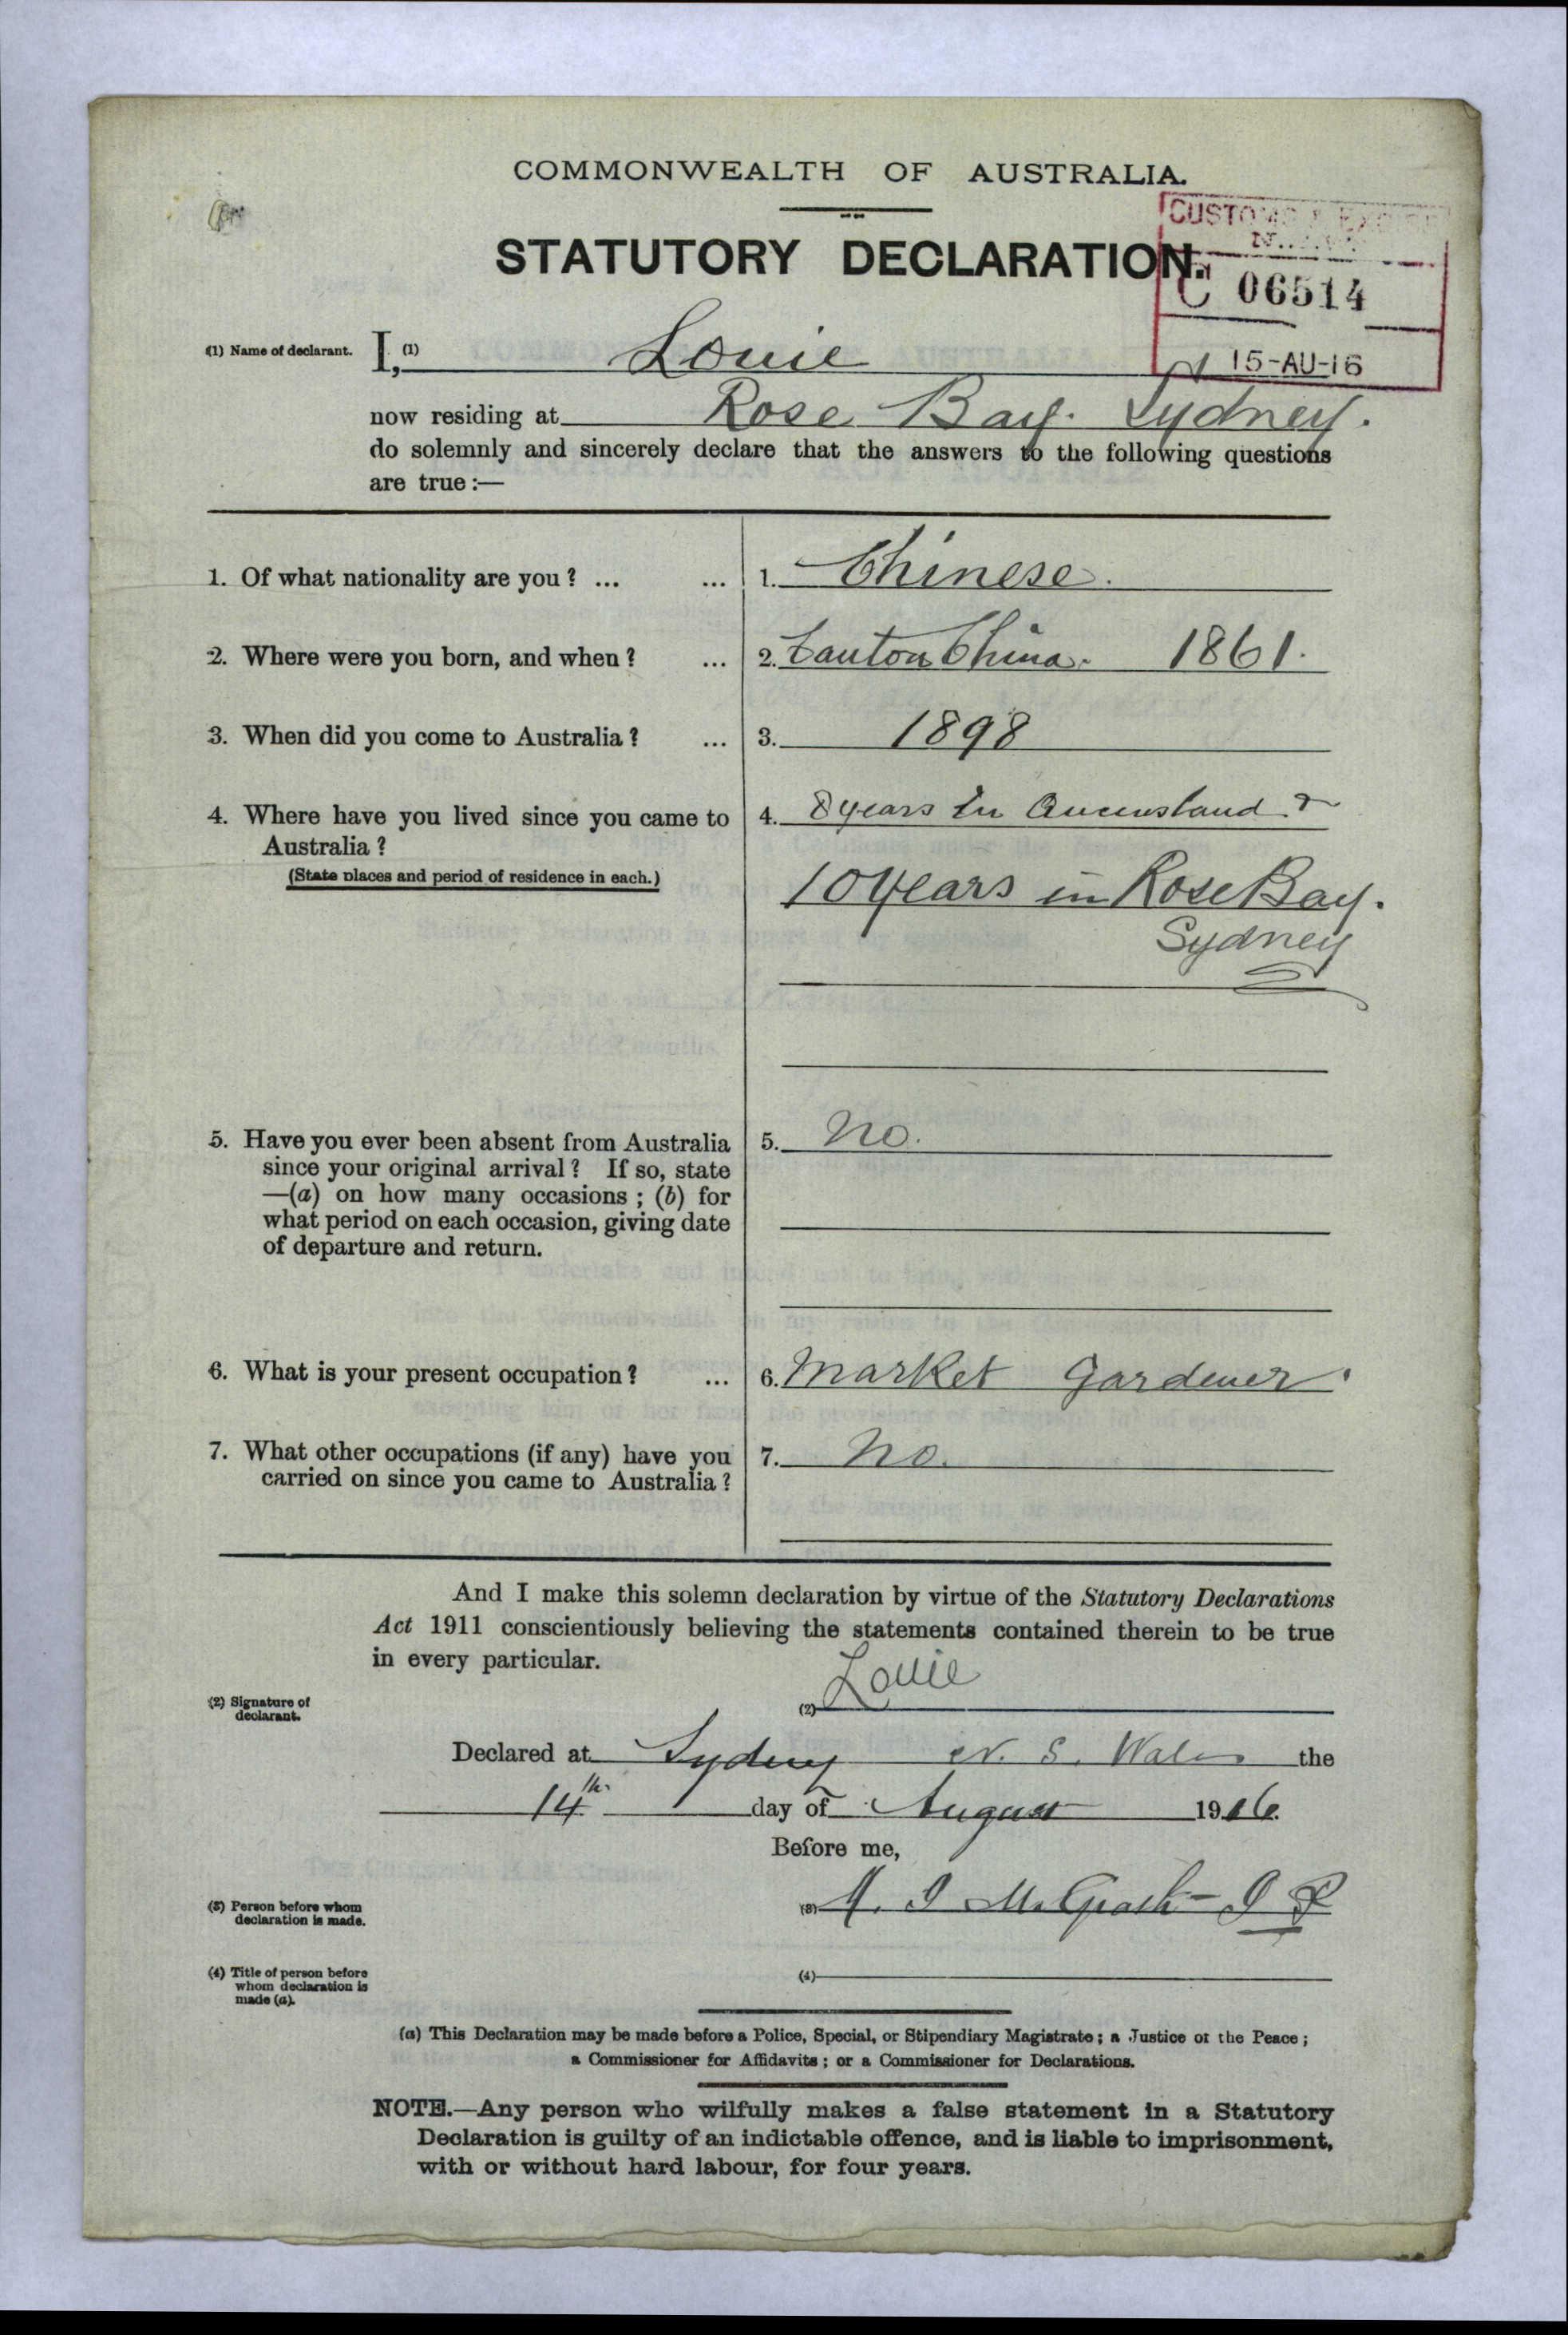 COMMONWEALTH OF AUSTRALIA.
CUSTOMS & EXCISE
STATUTORY DECLARATION.
C 06514
15-AU-16
(1) Name of declarant. I, (1) Louie
now residing at Rose Bay. Sydney.
do solemnly and sincerely declare that the answers to the following questions
are true:—
1. Of what nationality are you? ... ... 1. Chinese.
2. Where were you born, and when? ... 2. Canton China. 1861.
3. When did you come to Australia? ... 3. 1898
4. Where have you lived since you came to 4. 8 years in Queensland &
Australia?
(State places and period of residence in each.) 10 years in Rose Bay.
Sydney
5. Have you ever been absent from Australia 5. No.
since your original arrival? If so, state
—(a) on how many occasions; (b) for
what period on each occasion, giving date
of departure and return.
6. What is your present occupation? ... 6. Market Gardener.
7. What other occupations (if any) have you 7. No.
carried on since you came to Australia?
And I make this solemn declaration by virtue of the Statutory Declarations
Act 1911 conscientiously believing the statements contained therein to be true
in every particular.
(2) Signature of (2) Louie
declarant.
Declared at Sydney N. S. Wales the
14th. day of August 1916.
Before me,
(3) Person before whom (3) McGrath J P
declaration is made.
(4) Title of person before (4)
whom declaration is
made (a).
(a) This Declaration may be made before a Police, Special, or Stipendiary Magistrate; a Justice of the Peace;
a Commissioner for Affidavits; or a Commissioner for Declarations.
NOTE.—Any person who wilfully makes a false statement in a Statutory
Declaration is guilty of an indictable offence, and is liable to imprisonment,
with or without hard labour, for four years.